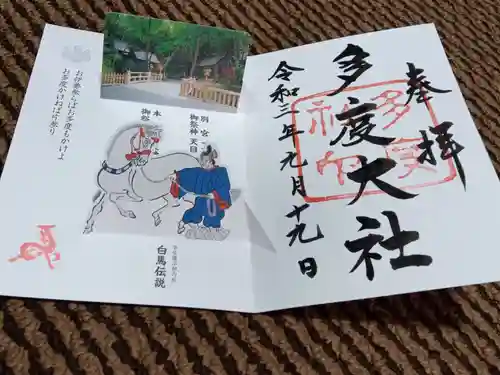 奉拝
多度大社
令和三年九月十九日
お伊勢参らばお多度もかけよ
お多度かけねば片参り
別宮
御祭神 天目
本
御祭
白馬伝説